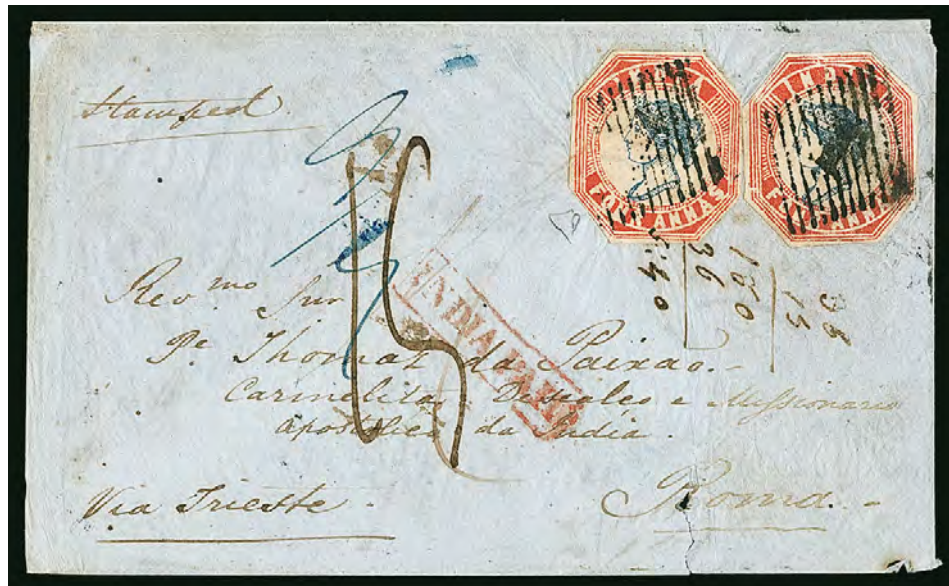 Stamped
INDIA
FOUR ANNAS
INDIA
FOUR ANNAS
INDIA PAID
36
15
180
36
540
Rev.mo Snr
Pe. Thomaz da Paixao.
Carmelita Descalço e Missionario
Apostolico da India.
Via Trieste
Roma.